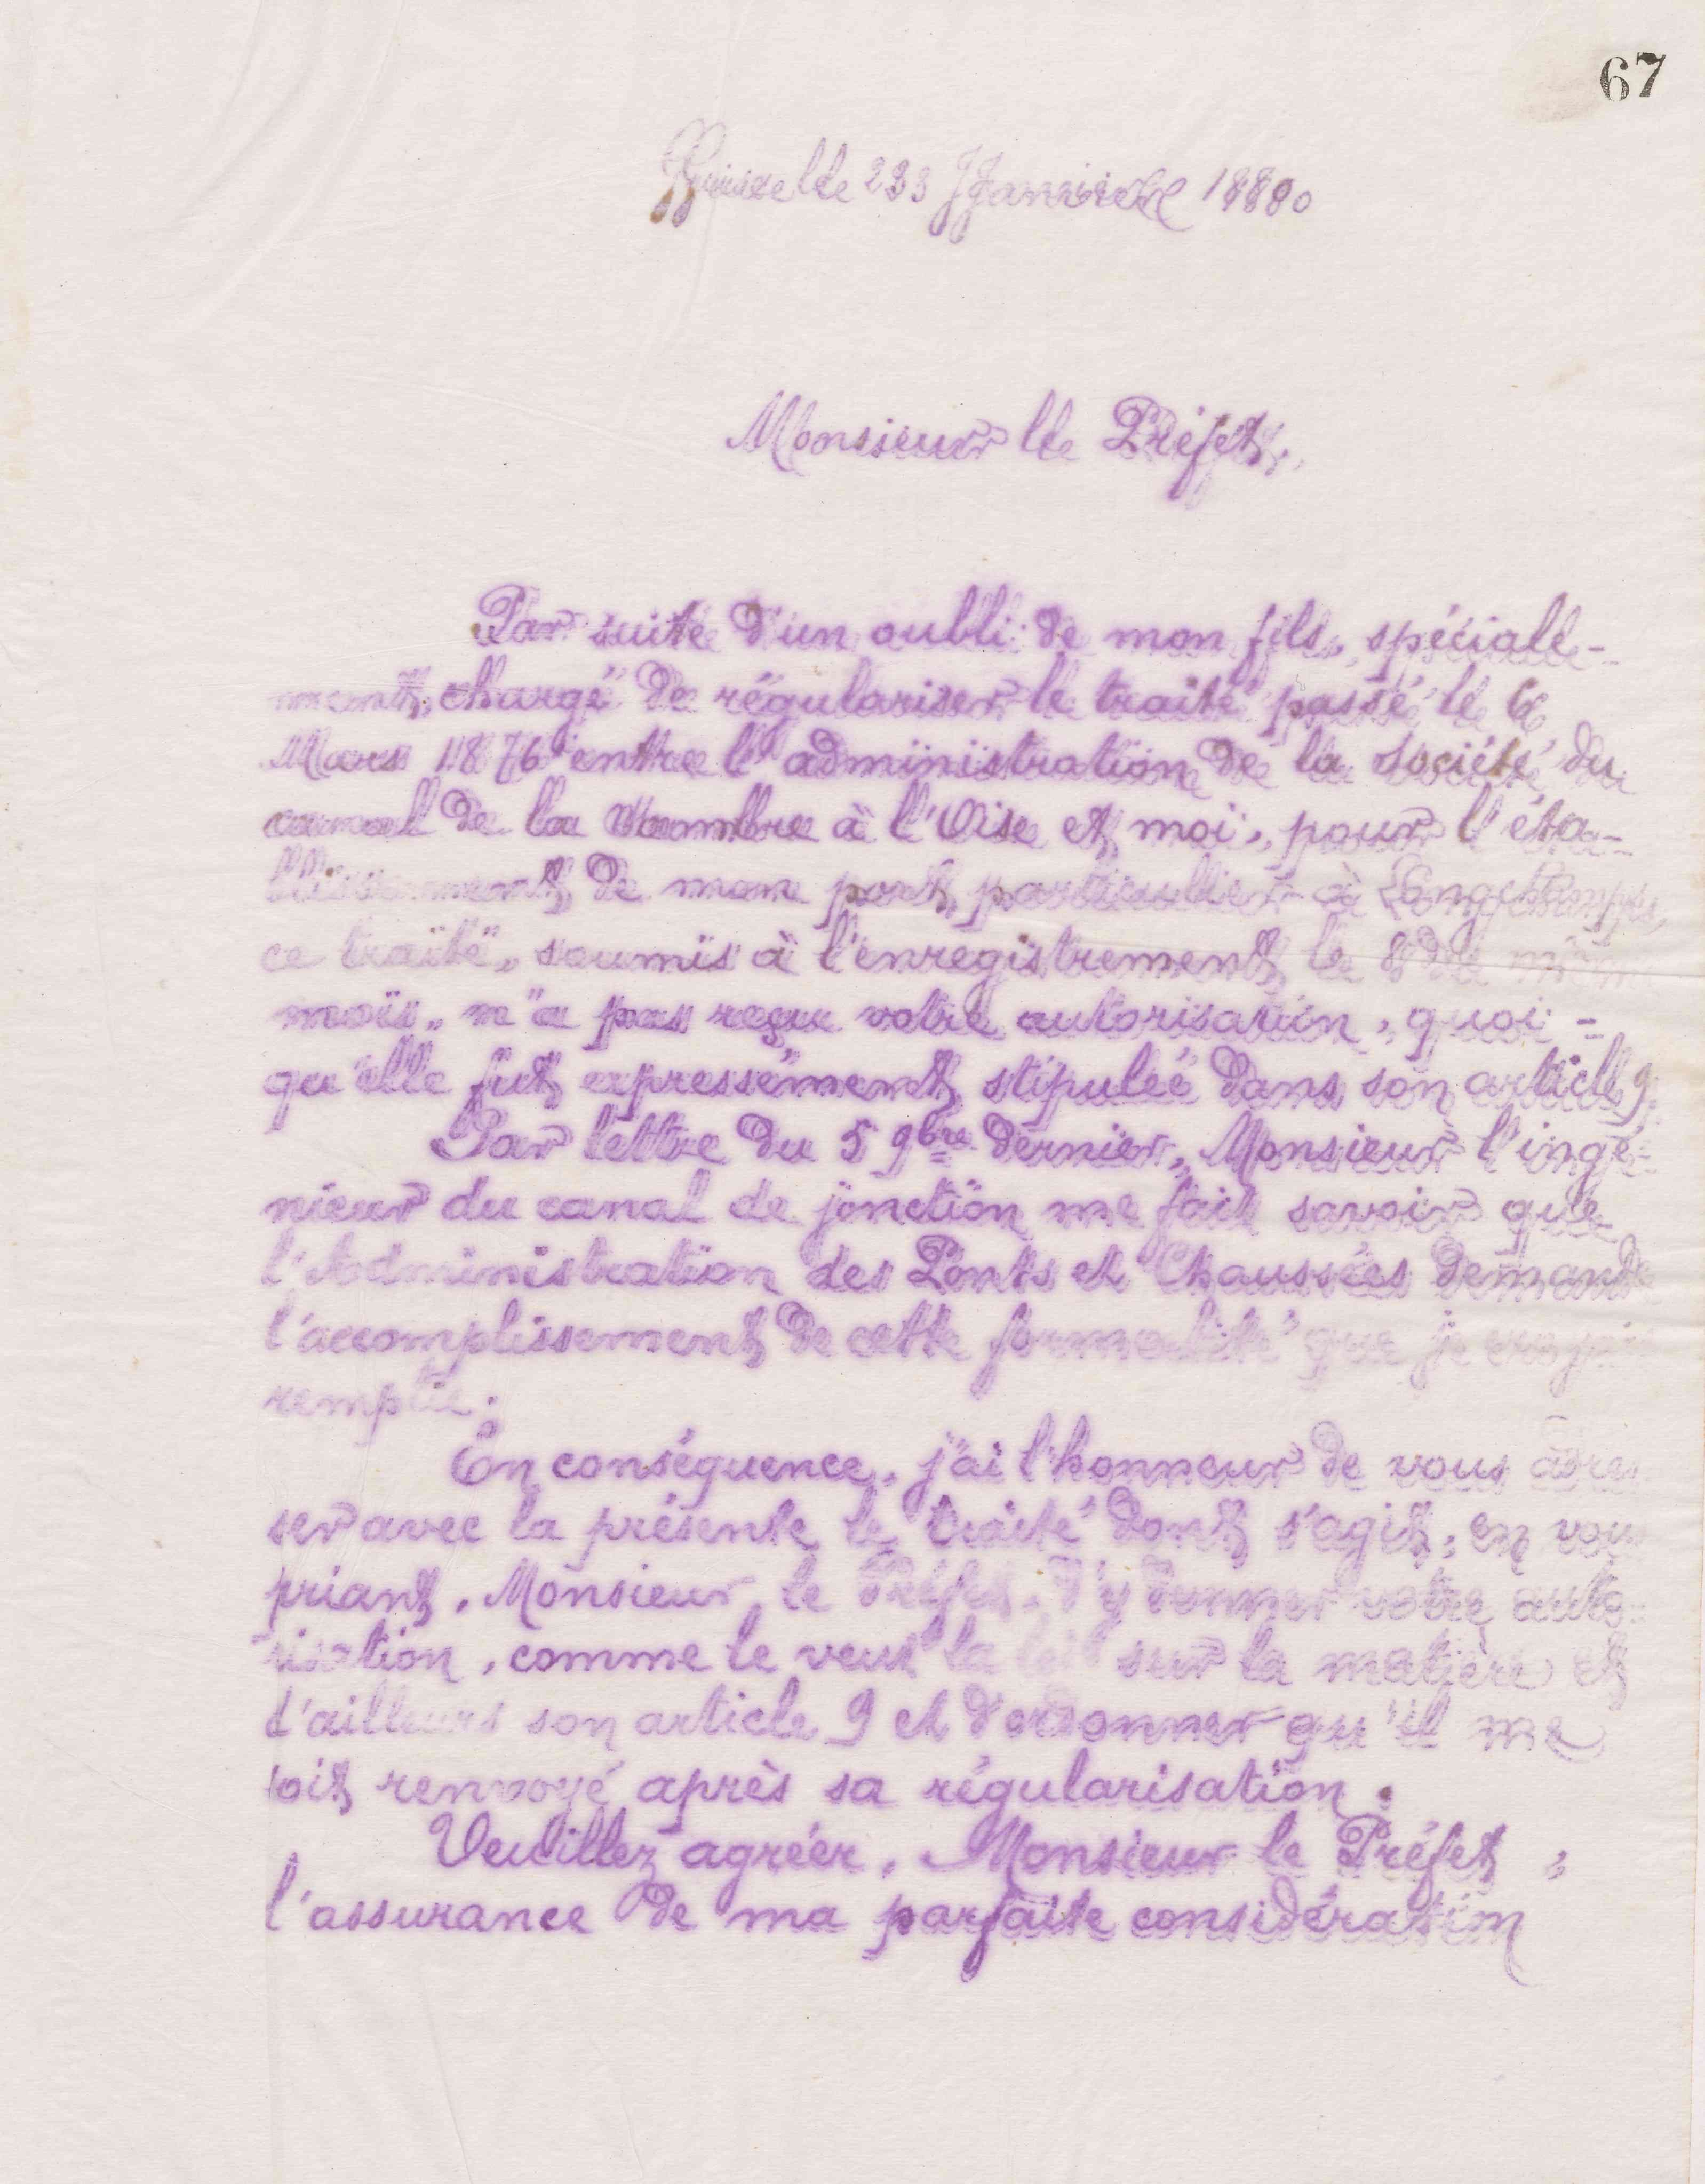 67
Guise le 23 Janvier 1880
Monsieur le Préfet,
Par suite d'un oubli de mon fils, spéciale-
ment chargé de régulariser le traité passé le 6
Mars 1876 entre l'administration de la société du
canal de la Sambre à l'Oise et moi, pour l'éta-
blissement de mon port particulier à Longchamps,
ce traité, soumis à l'enregistrement le 8 du même
mois, n'a pas reçu votre autorisation, quoi-
qu'elle fut expressément stipulée dans son article 9.
Par lettre du 5 9bre dernier, Monsieur l'ingé-
nieur du canal de jonction me fait savoir que
l'Administration des Ponts et Chaussées demande
l'accomplissement de cette formalité que je croyais
remplie.
En conséquence, j'ai l'honneur de vous adres
ser avec la présente le traité dont s'agit, en vous
priant, Monsieur le Préfet, d'y donner votre auto-
risation, comme le veut la loi sur la matière et
d'ailleurs son article 9 et d'ordonner qu'il me
soit renvoyé après sa régularisation.
Veuillez agréer, Monsieur le Préfet,
l'assurance de ma parfaite considération